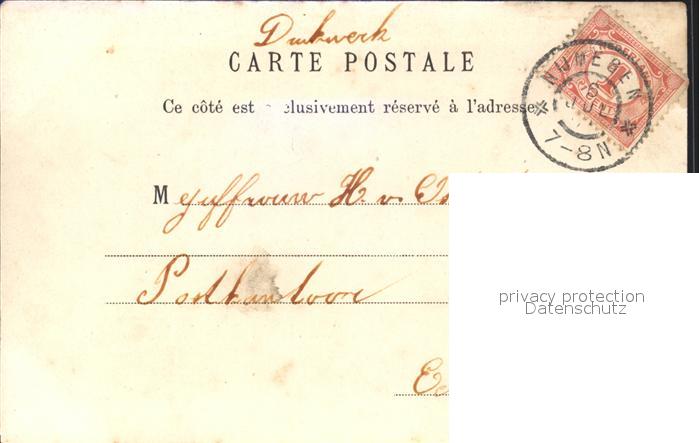 Drukwerk
CARTE POSTALE
Ce côté est exclusivement réservé à l'adresse
NIJMEGEN
JUL
7-8N
Mejuffrouw H. v.
Postkantoor
privacy protection
Datenschutz